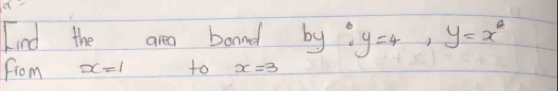 Find the area bonnd by : y=4 , y=x²
from x=1 to x=3